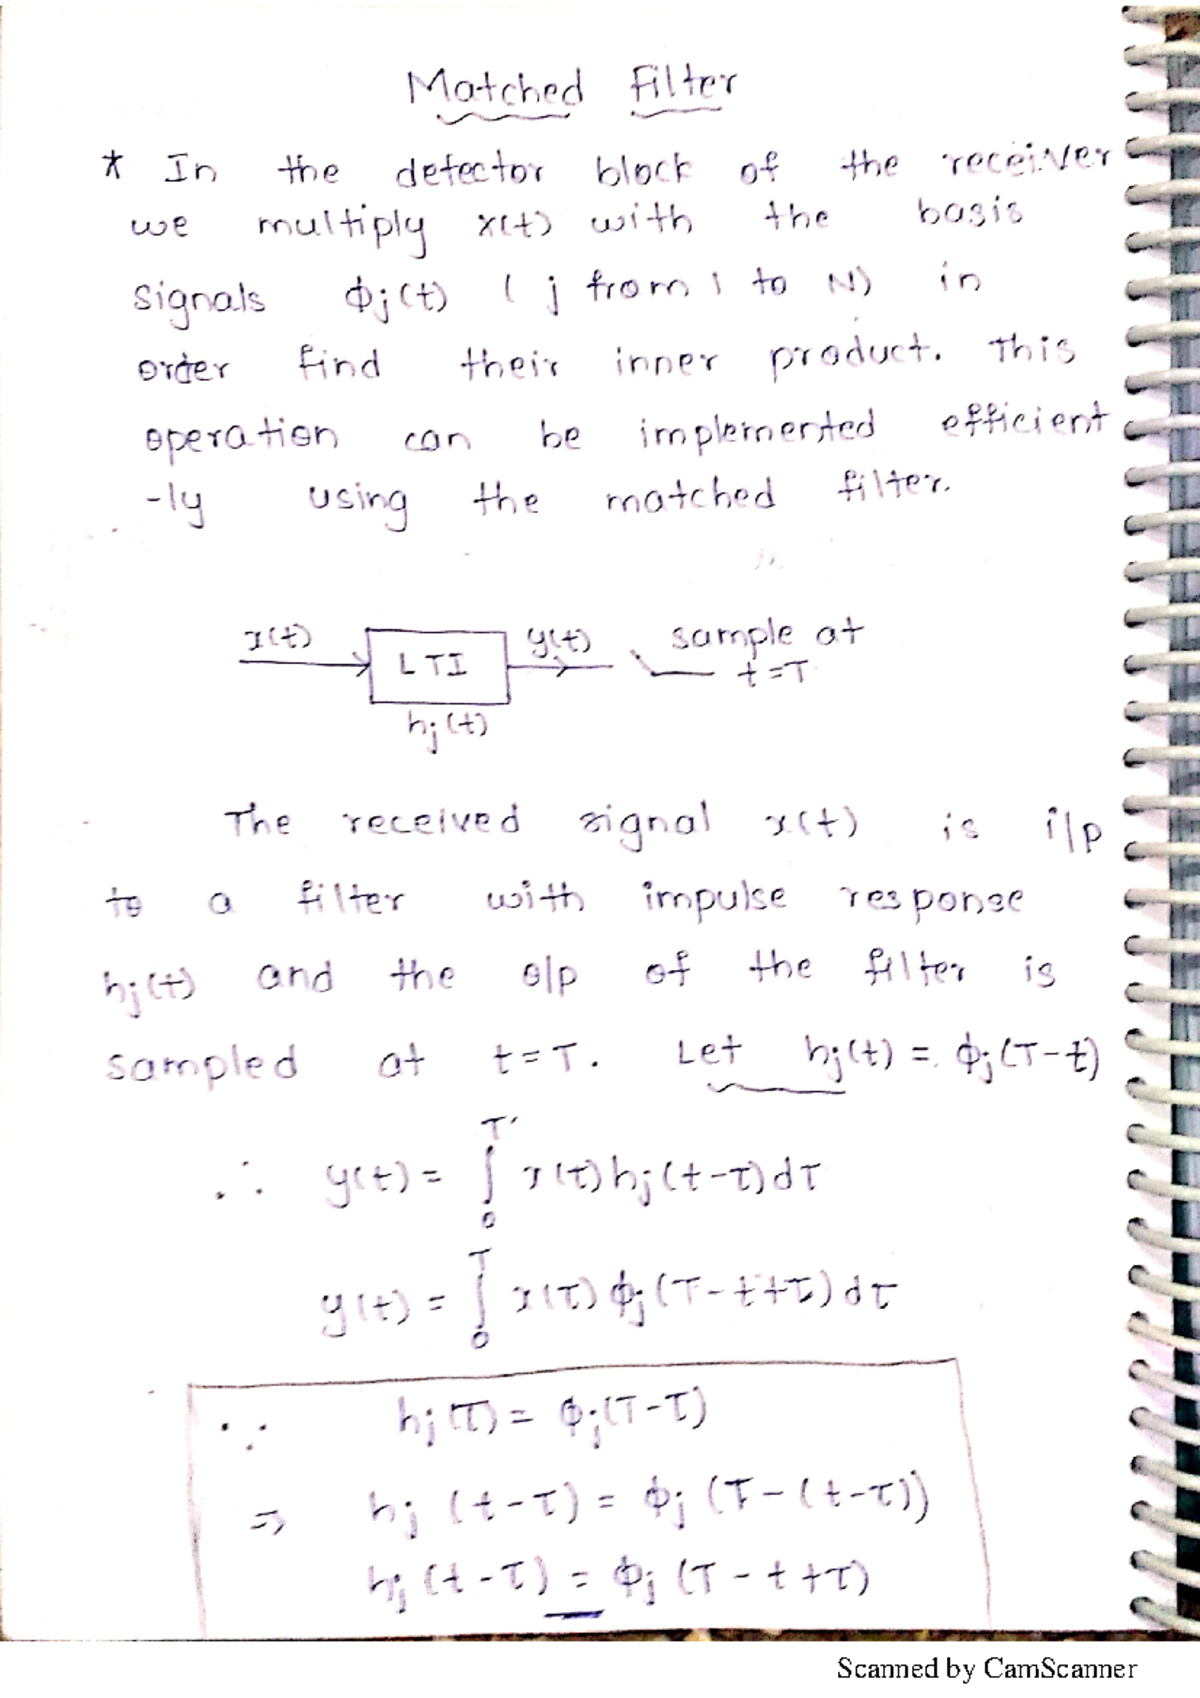 Matched Filter
* In the detector block of the receiver
we multiply x(t) with the basis
signals ϕj(t) ( j from 1 to N) in
order find their inner product. This
operation can be implemented efficient
-ly using the matched filter.
x(t) LTI y(t) sample at
t=T
hj(t)
The received signal x(t) is i/p
to a filter with impulse response
hj(t) and the o/p of the filter is
sampled at t=T. Let hj(t) = ϕj(T-t)
∴ y(t) = ∫₀ᵀ x(τ) hj(t-τ)dτ
y(t) = ∫₀ᵀ x(τ) ϕj(T-t+τ)dτ
∵ hj(τ) = ϕj(T-τ)
⇒ hj (t-τ) = ϕj (T-(t-τ))
hj (t-τ) = ϕj (T-t+τ)
Scanned by CamScanner